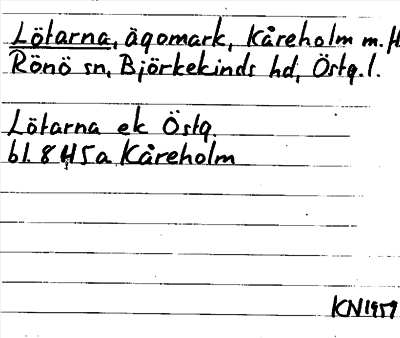 Lötarna, ägomark, Kåreholm m. fl
Rönö sn, Björkekinds hd, Östg. l.
Lötarna ek Östg.
bl. 8 H 5 a Kåreholm
KN 1959